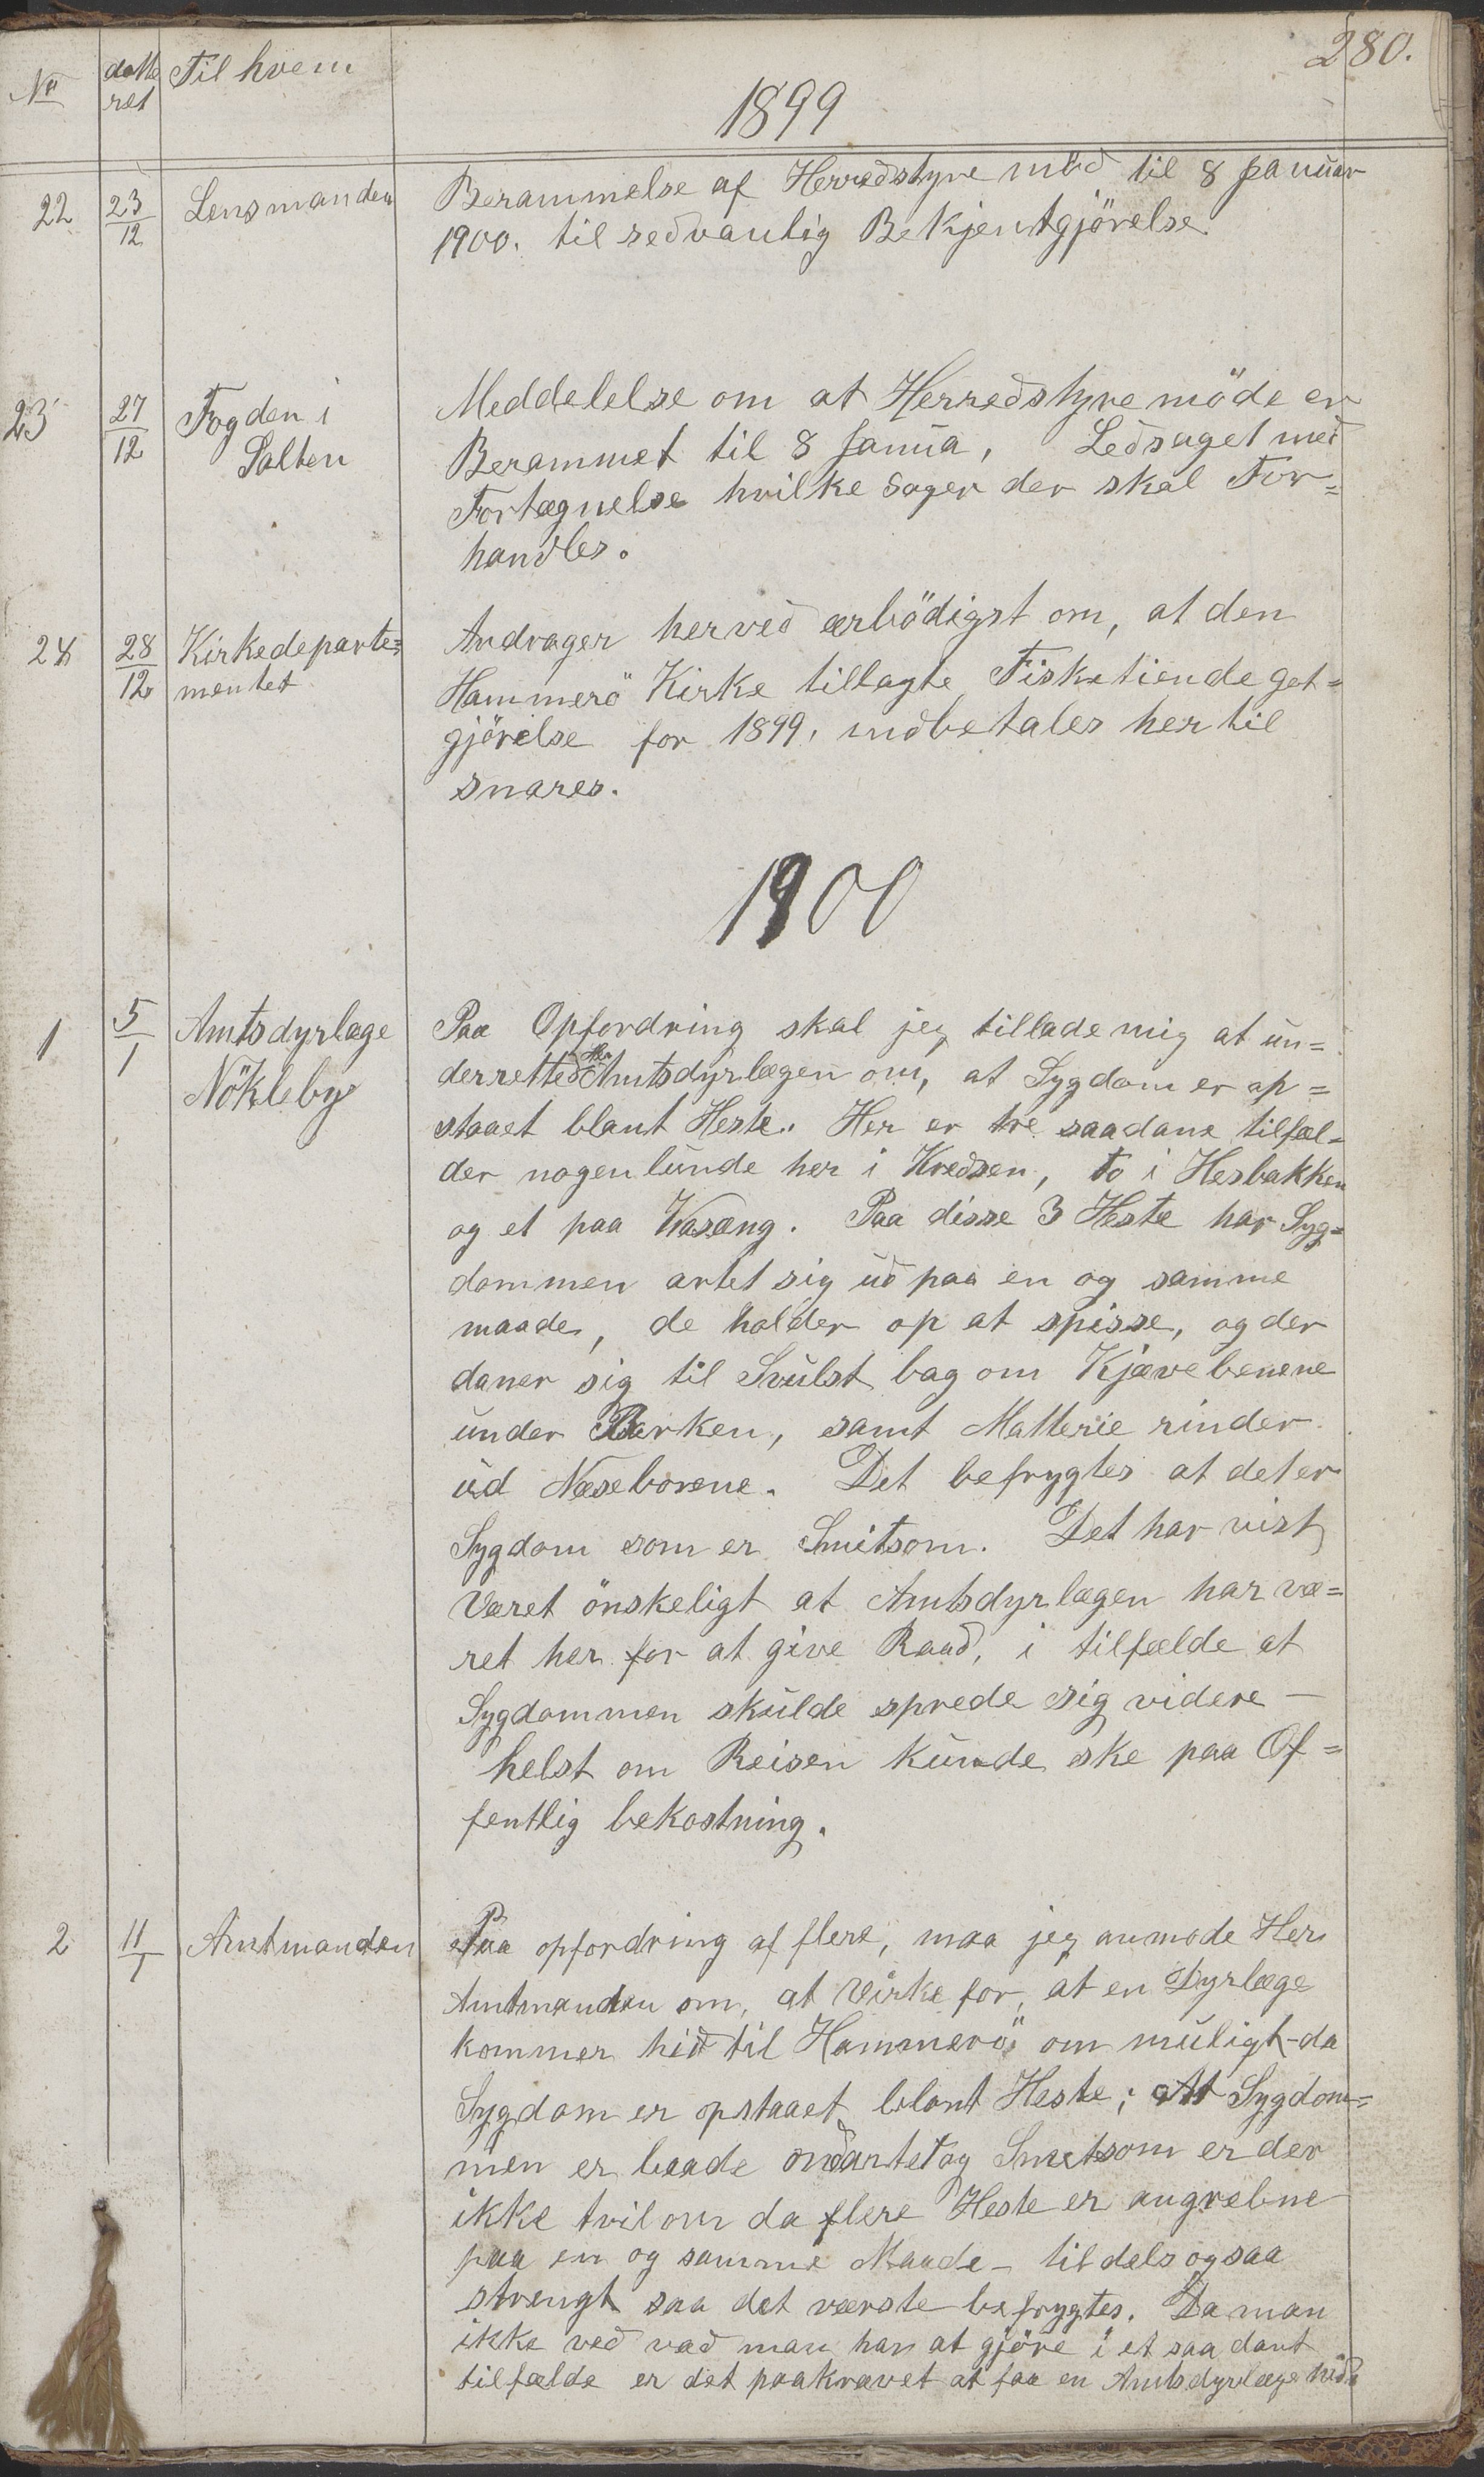 280.
No datte Til hvem
ret
1899
22 23/12 Lensmanden Berammelse af Herredstyre möd til 8 januar
1900. til sedvanlig Bekjentgjörelse.
23 27/12 Fogden i Meddelelse om at Herredstyremöde er
Salten Berammet til 8 Janua, Ledsaget med
Fortegnelse hvilke Sager der skal For=
handles.
24 28/12 Kirkedeparte= Andrager herved ærbödigst om, at den
mentet Hammerö Kirke tillagte Fisketiendeget=
gjörelse for 1899, indbetales hertil
snares.
1900
1 5/1 Amtsdyrlæge Paa Opfordring skal jeg tillade mig at un=
Nökleby derrette Hr Amtsdyrlægen om, at Sygdom er op=
staaet blant Heste. Her er tre saadane tilfæl=
der nogenlunde her i Kredsen, to i Hesbakken
og et paa Vasæng. Paa disse 3 Heste har Syg=
dommen artet sig ud paa en og samme
maade, de holder op at spisse, og der
daner sig til Svulst bag om Kjævebenene
under Barken, samt Matterie rinder
ud Næseborene. Det befrygtes at det er
Sygdom som er Smitsom. Det har vist
Været önskeligt at Amtsdyrlægen har væ=
ret her for at give Raad, i tilfælde at
Sygdommen skulde sprede sig videre —
helst om Reisen kunde ske paa Of=
fentlig bekostning.
2 11/1 Amtmanden Paa opfordring af flere, maa jeg anmode Her
Amtmanden om, at Virke for, at en Dyrlæge
kommer hid til Hammerö, om muligt - da
Sygdom er opstaaet blant Heste; At Sygdom=
men er baade ondartet og Smetsom er der
ikke tvil om da flere Heste er angrebne
paa en og samme Maade - tildels ogsaa
strengt saa det værste befrygtes. Da man
ikke ved vad man har at gjöre i et saadant
tilfælde er det paakrævet at faa en Amtsdyrlæge hid.